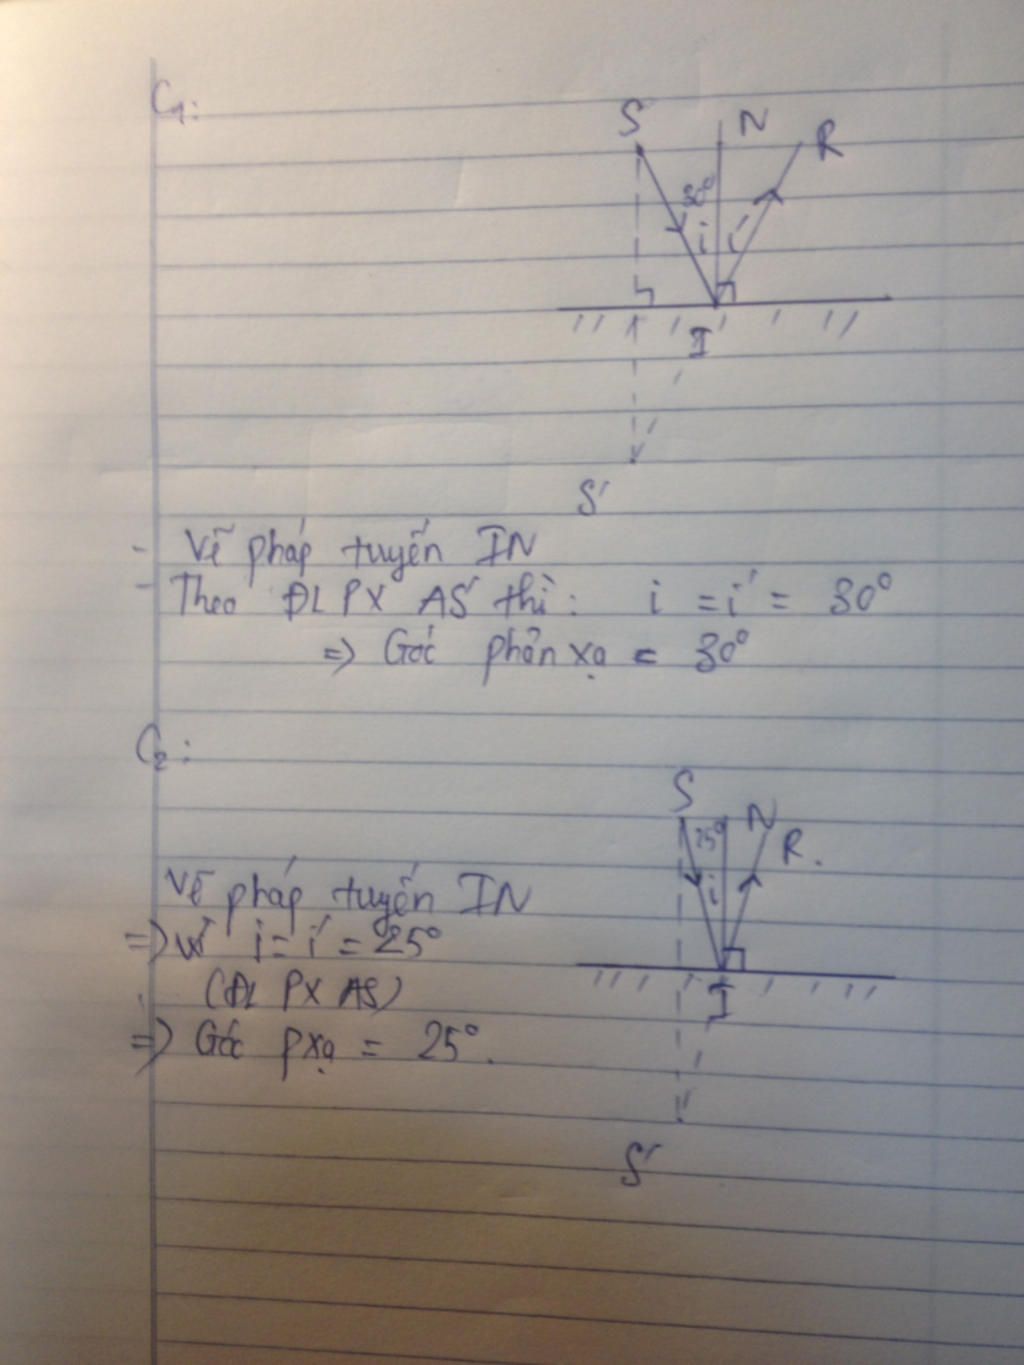 C1:
S N R
30°
i i'
I
S'
- Vẽ pháp tuyến IN
- Theo ĐL PX AS thì: i = i' = 30°
=> Góc phản xạ = 30°
C2:
S N
25° R.
i
Vẽ pháp tuyến IN
=> i = i' = 25°
I
(ĐL PX AS)
=> Góc pxạ = 25°.
S'